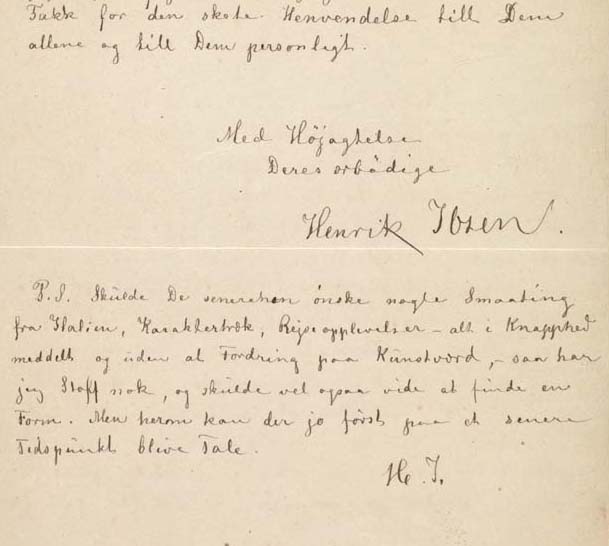 Takk for den skete Henvendelse till Dem
allene og till Dem personligt.
Med Höjagtelse
Deres ærbödige
Henrik Ibsen.
P.S. Skulde De senerehen önske nogle Smaating
fra Italien, Karaktertræk, Rejseopplevelser – alt i Knapphed
meddelt og uden al Fordring paa Kunstværd, – saa har
jeg Stoff nok, og skulde vel ogsaa vide at finde en
Form. Men herom kan der jo först paa et senere
Tidspunkt blive Tale.
H. I.